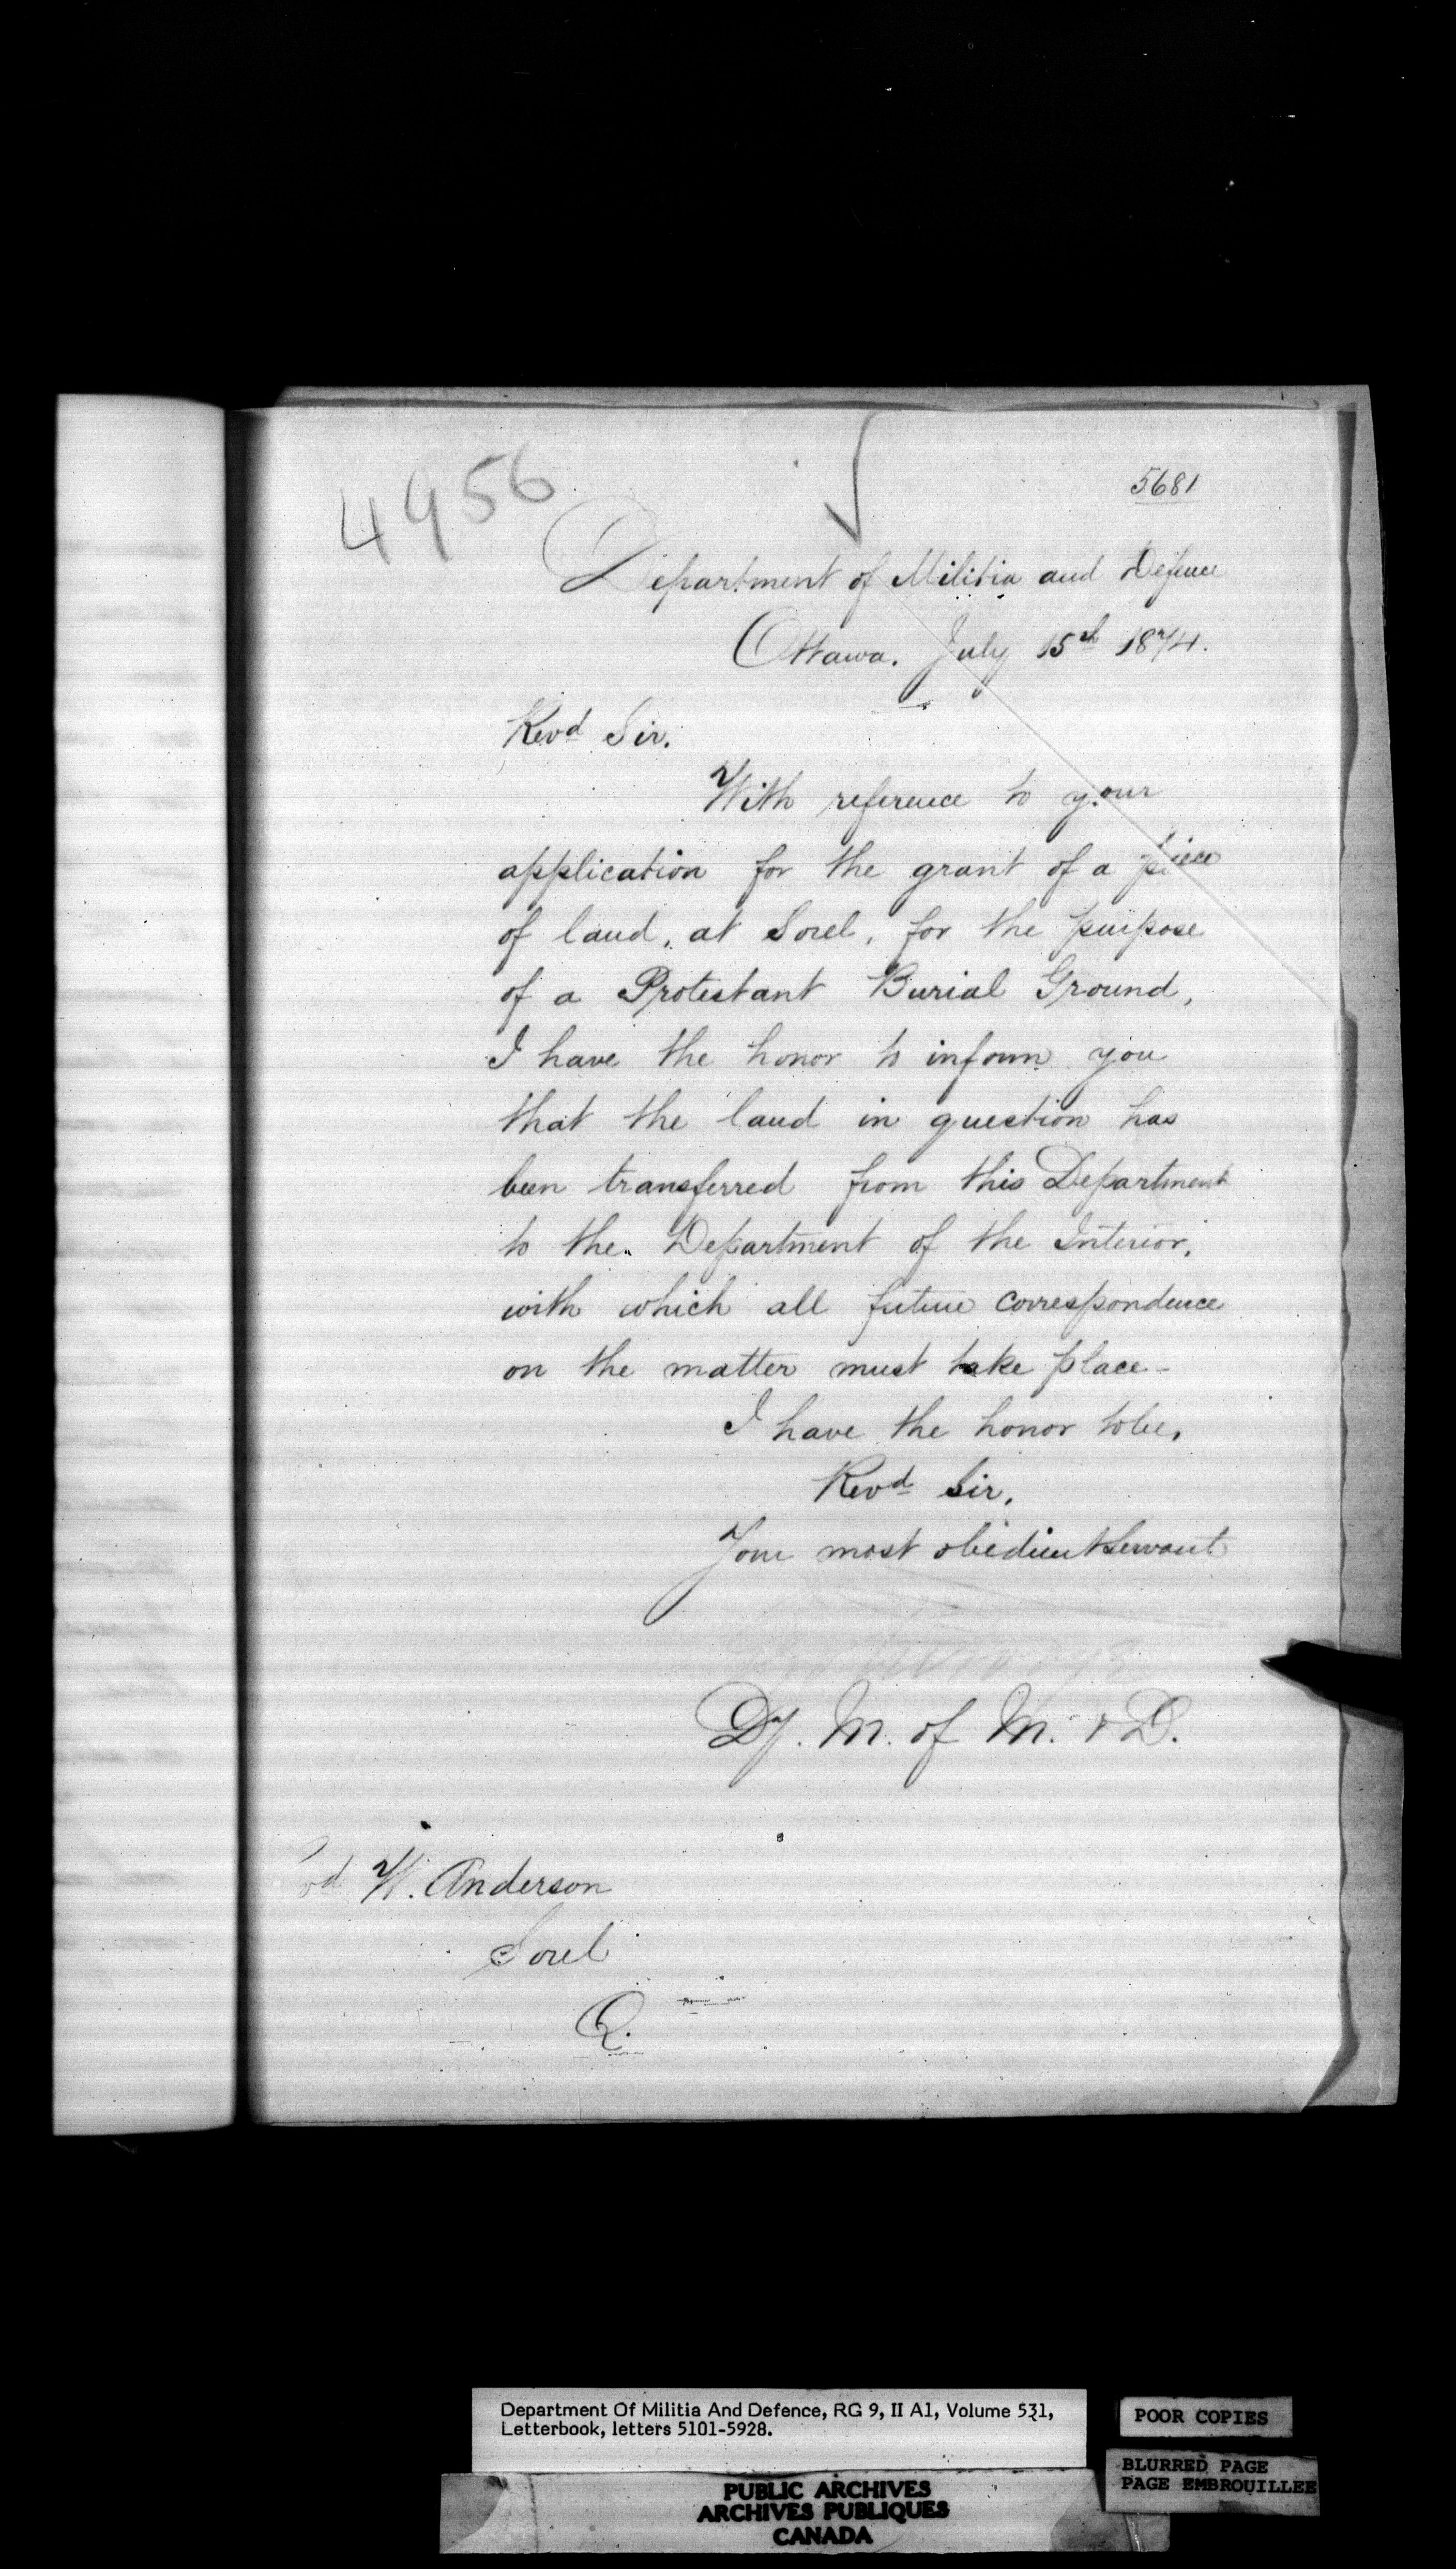 4956
5681
Department of Militia and Defence
Ottawa. July 15th 1874.
Revd Sir.
With reference to your
application for the grant of a piece
of land, at Sorel, for the purpose
of a Protestant Burial Ground,
I have the honor to inform you
that the land in question has
been transferred from this Department
to the Department of the Interior,
with which all future correspondence
on the matter must take place-
I have the honor to be,
Revd Sir,
Your most obedient Servant
Dy. M. of M. & D.
vd W. Anderson
Sorel
Q.
Department Of Militia And Defence, RG 9, II A1, Volume 531,
Letterbook, letters 5101-5928.
POOR COPIES
BLURRED PAGE
PAGE EMBROUILLEE
PUBLIC ARCHIVES
ARCHIVES PUBLIQUES
CANADA